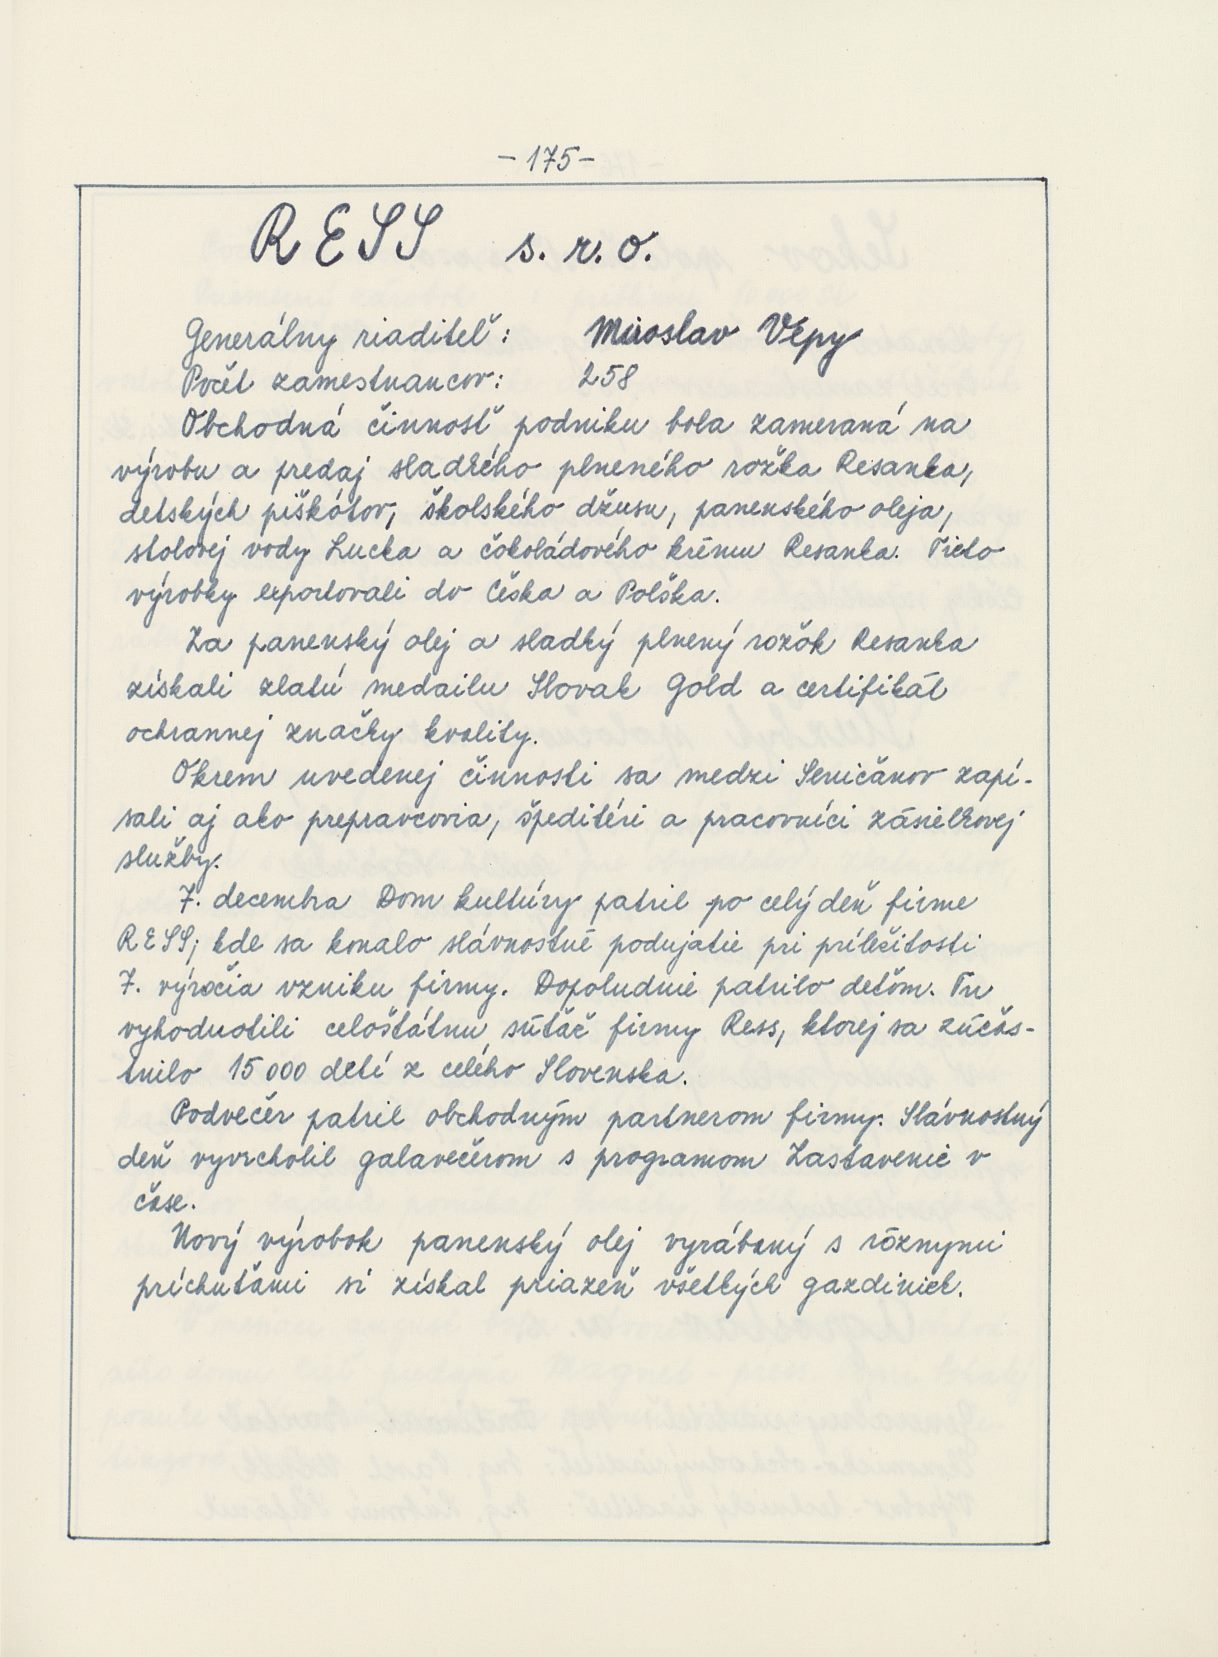 - 175 -
RESS s. r. o.
Generálny riaditeľ: Miroslav Vépy
Počet zamestnancov: 258
Obchodná činnosť podniku bola zameraná na
výrobu a predaj sladkého plneného rožka Resanka,
detských piškótov, školského džusu, panenského oleja,
stolovej vody Lucka a čokoládového krému Resanka. Tieto
výrobky exportovali do Česka a Poľska.
Za panenský olej a sladký plnený rožok Resanka
získali zlatú medailu Slovak Gold a certifikát
ochrannej značky kvality.
Okrem uvedenej činnosti sa medzi Seničanov zapí-
sali aj ako prepravcovia, špeditéri a pracovníci zásielkovej
služby.
7. decembra Dom kultúry patril po celý deň firme
RESS, kde sa konalo slávnostné podujatie pri príležitosti
7. výročia vzniku firmy. Dopoludnie patrilo deťom. Tu
vyhodnotili celoštátnu súťaž firmy Ress, ktorej sa zúčas-
tnilo 15 000 detí z celého Slovenska.
Podvečer patril obchodným partnerom firmy. Slávnostný
deň vyvrcholil galavečerom s programom Zastavenie v
čase.
Nový výrobok panenský olej vyrábaný s rôznymi
príchuťami si získal priazeň všetkých gazdiniek.